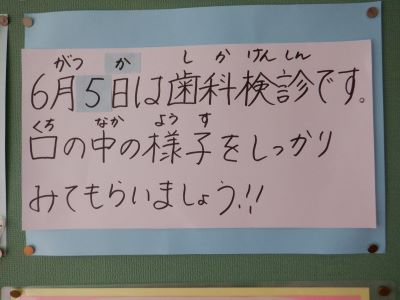 がつ か し か けん しん
6月5日は歯科検診です。
くち なか よう す
口の中の様子をしっかり
みてもらいましょう!!